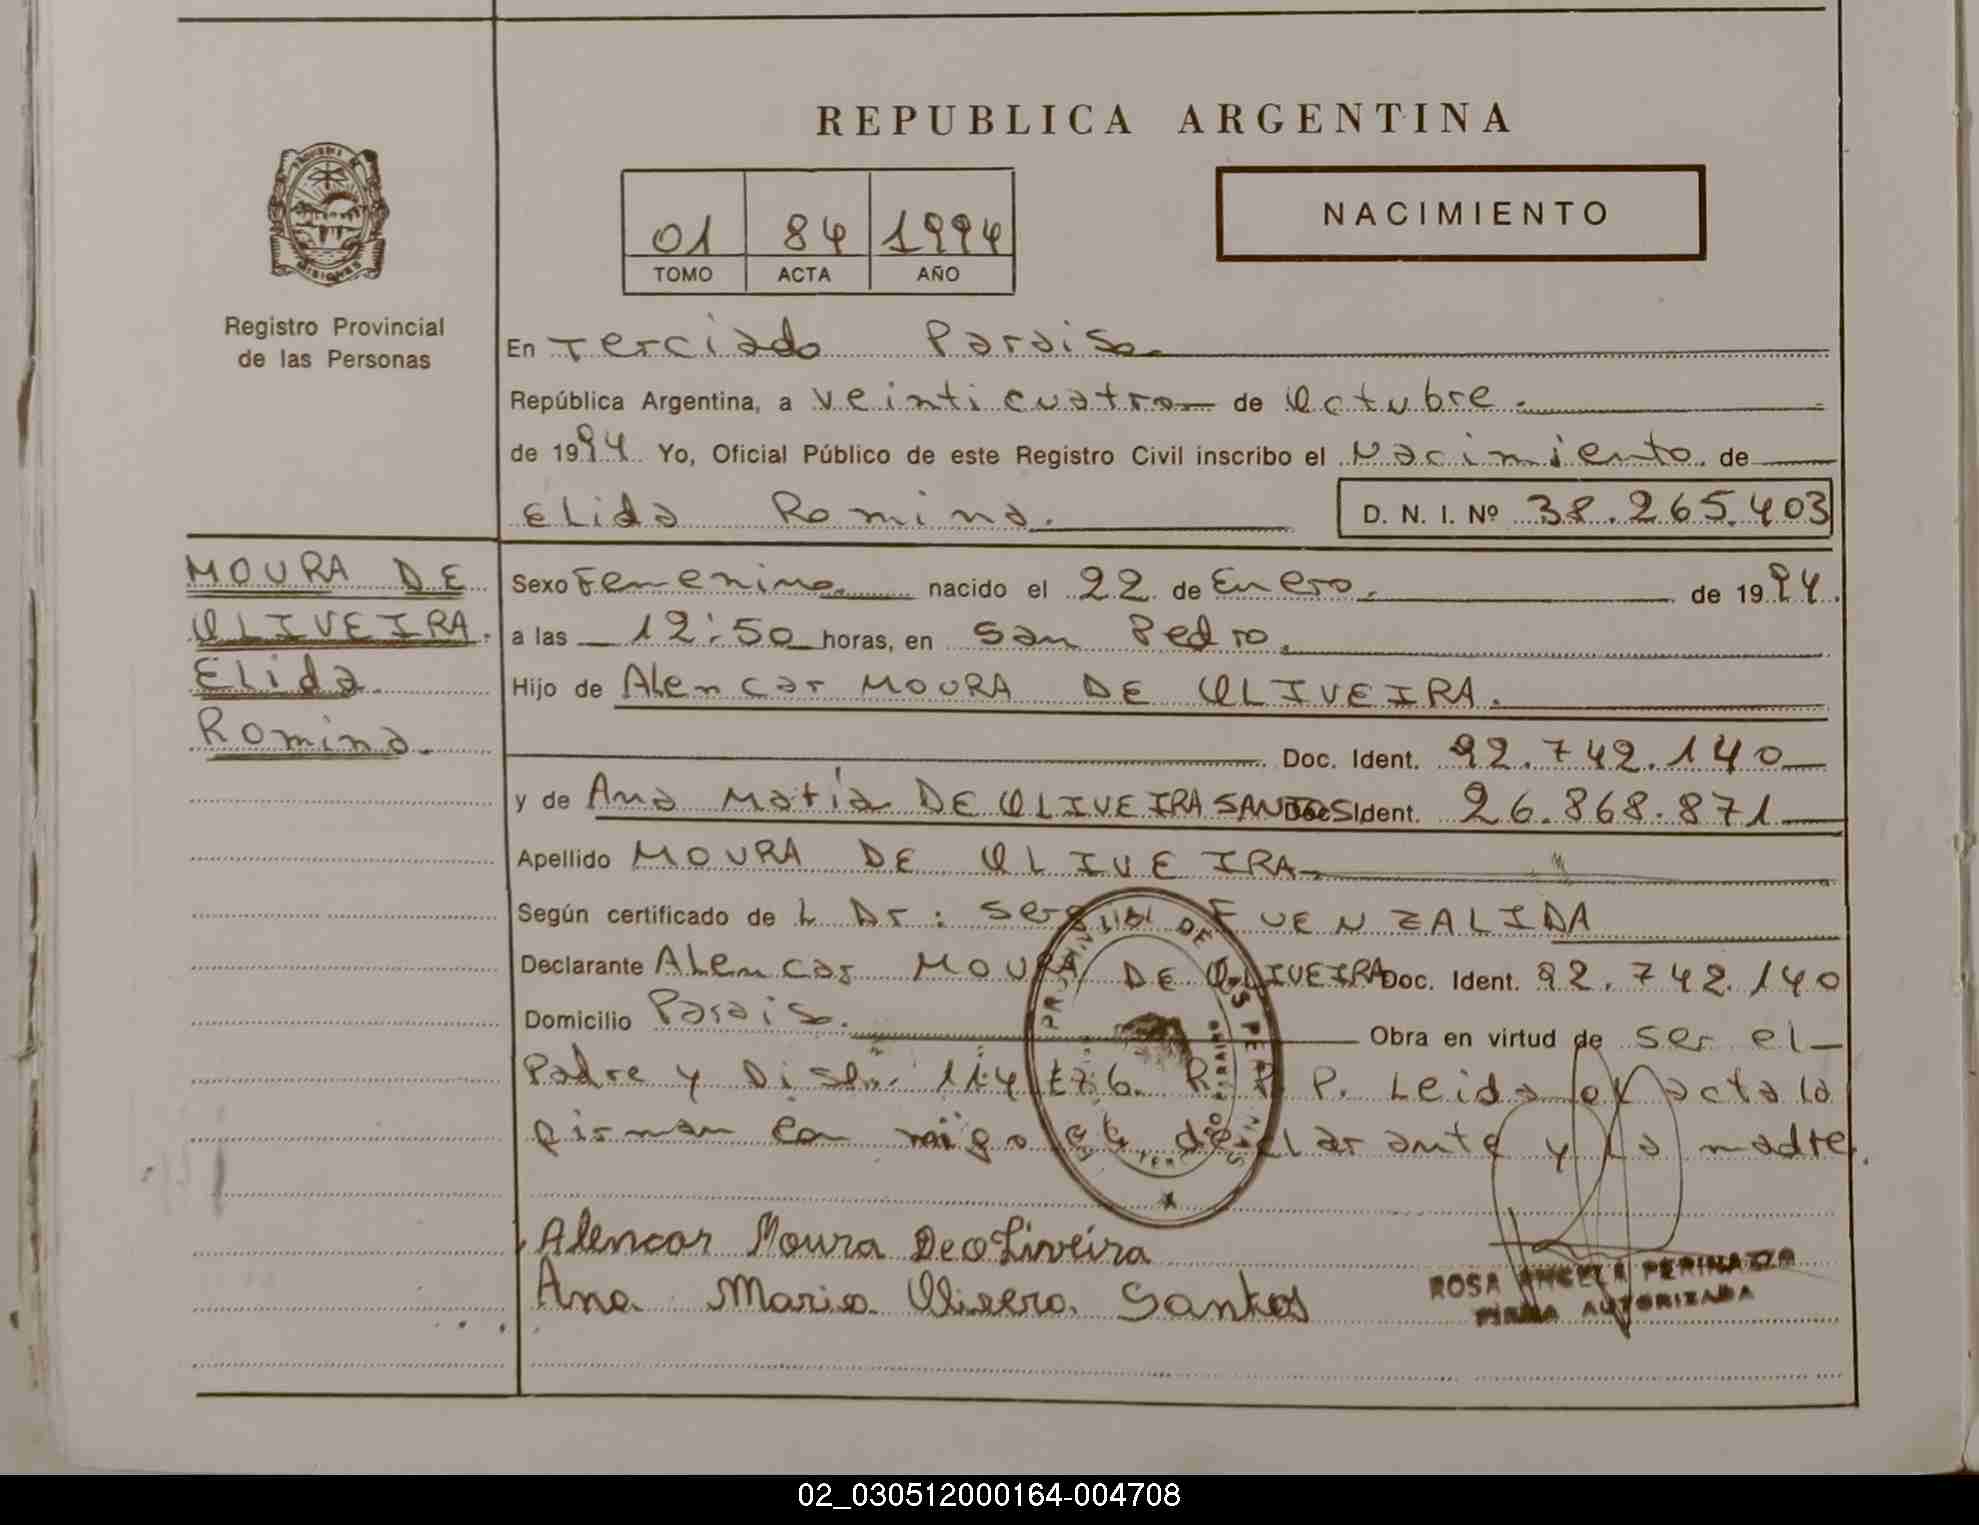 REPUBLICA ARGENTINA
PROVINCIA DE
MISIONES
Registro Provincial
de las Personas
01 84 1994
TOMO ACTA AÑO
NACIMIENTO
En Terciado Paraiso.
República Argentina, a veinticuatro de Octubre.
de 1994 Yo, Oficial Público de este Registro Civil inscribo el Nacimiento de
Elida Romina. D. N. I. Nº 38.265.403
MOURA DE
OLIVEIRA.
Elida
Romina.
Sexo Femenino. nacido el 22 de Enero. de 1994.
a las 12:50 horas, en San Pedro.
Hijo de Alencar MOURA DE OLIVEIRA.
Doc. Ident. 92.742.140
y de Ana Maria DE OLIVEIRA SANTOS Doc. Ident. 26.868.871
Apellido MOURA DE OLIVEIRA.
Según certificado de L Dr: FUENZALIDA
Declarante Alencar MOURA DE OLIVEIRA Doc. Ident. 92.742.140
Domicilio Paraiso. Obra en virtud de ser el
Padre y P. Leida el acta la
firman con migo el declarante y la madre.
Alencar Moura De oLiveira
Ana Maria Olivera Santos
ROSA ANGELA PERINAZZO
FIRMA AUTORIZADA
02_030512000164-004708